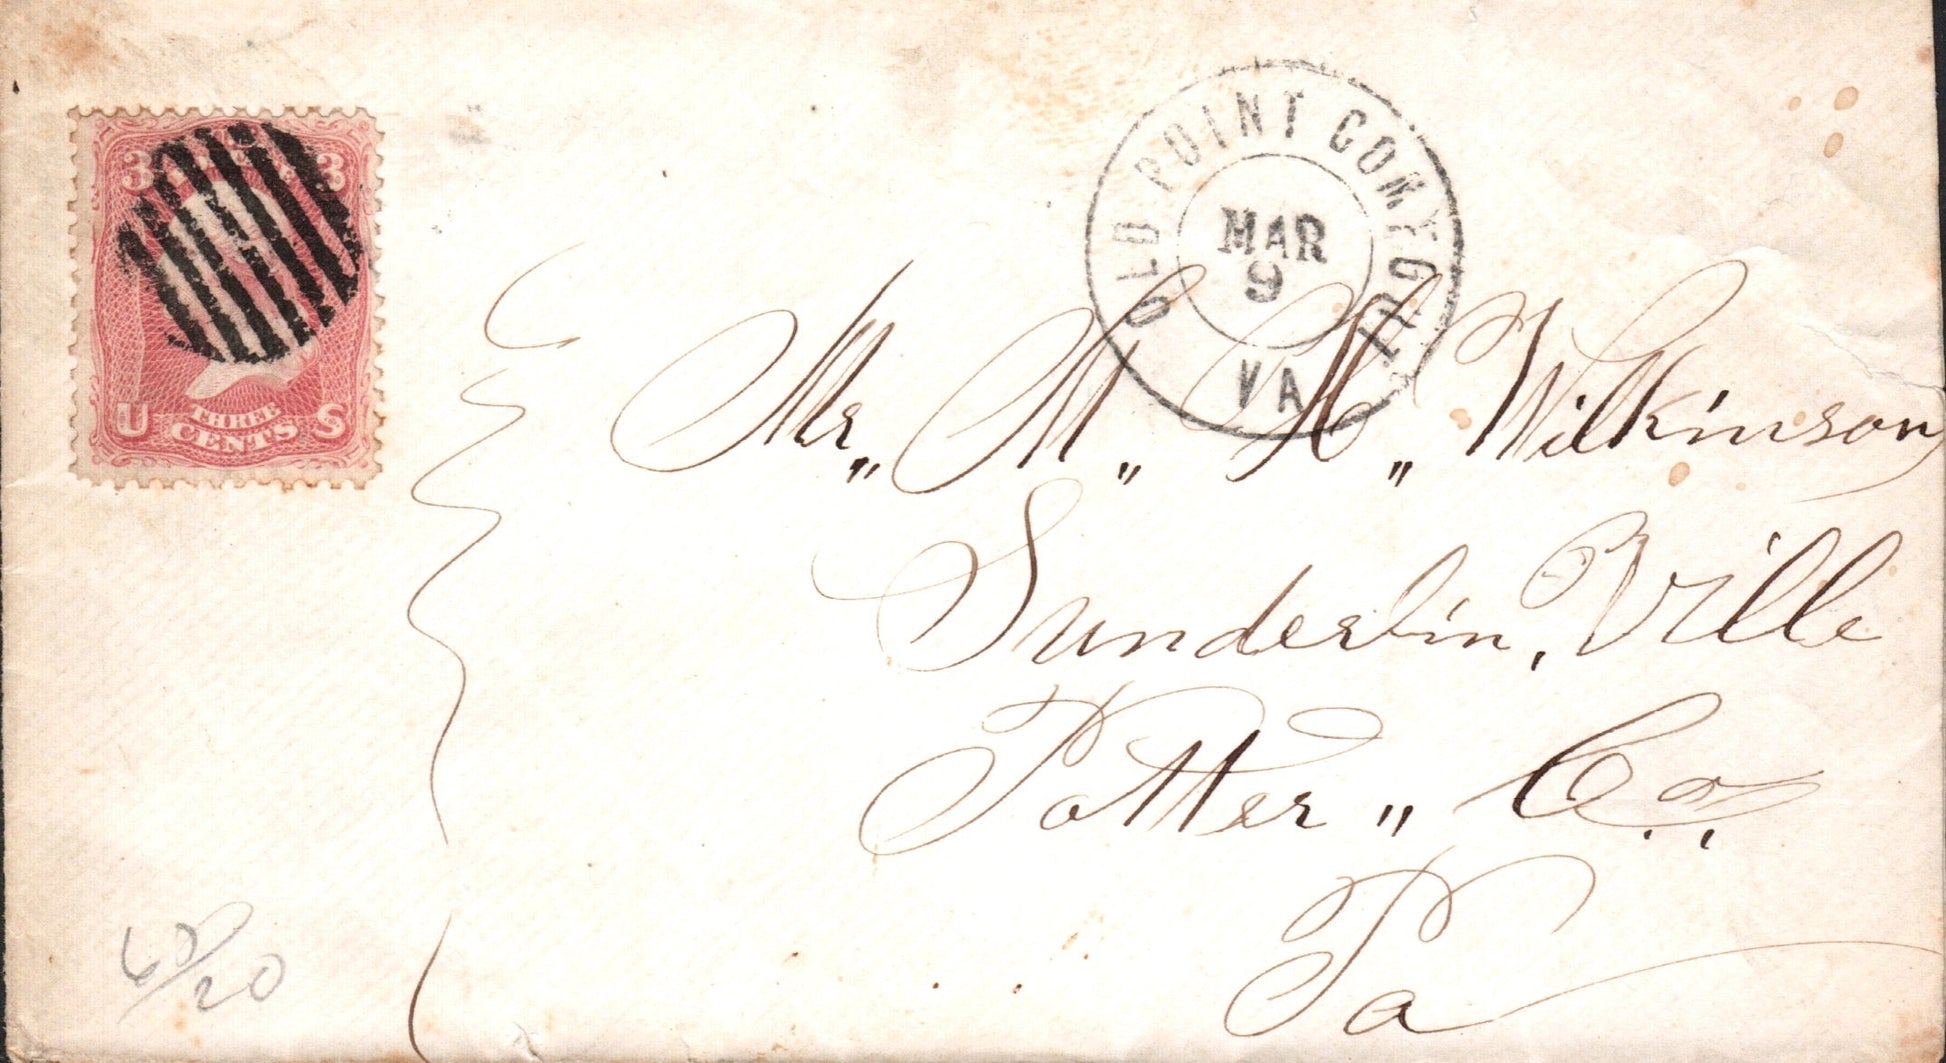 3 3
U THREE CENTS S
OLD POINT COMFORT
MAR
9
VA
Mr„ M„ H„ Wilkinson
Sunderlin, Ville
Potter„ Co.,
Pa
20